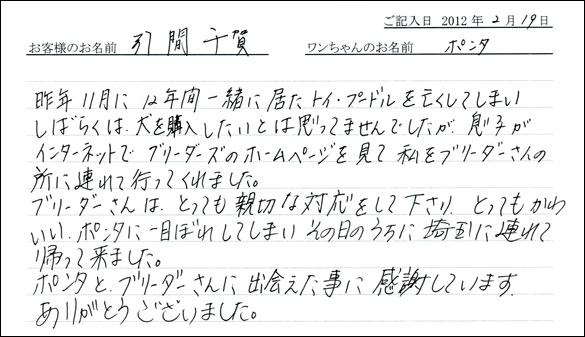 ご記入日 2012年2月19日
お客様のお名前 引間千賀 ワンちゃんのお名前 ポンタ
昨年11月に12年間一緒に居たトイ・プードルを亡くしてしまい
しばらくは、犬を購入したいとは思ってませんでしたが、息子が
インターネットでブリーダーズのホームページを見て私をブリーダーさんの
所に連れて行ってくれました。
ブリーダーさんは、とっても親切な対応をして下さり、とってもかわ
いい、ポンタに一目ぼれしてしまいその日のうちに埼玉に連れて
帰って来ました。
ポンタと、ブリーダーさんに出会えた事に感謝しています。
ありがとうございました。